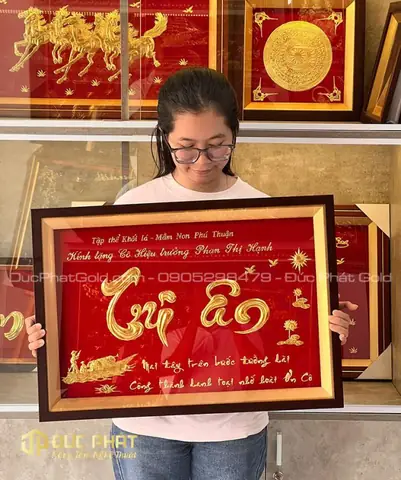 Tập thể Khối lá - Mầm Non Phú Thuận
Kính tặng Cô Hiệu trưởng Phan Thị Hạnh
DucPhatGold.com - 0905298479 - Đức Phát Gold
Tri Ân
Mai đây trên bước đường dài
Công thành danh toại nhớ hoài Ơn Cô
ĐỨC PHÁT